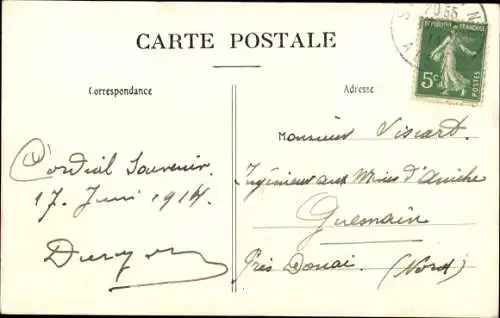 CARTE POSTALE
Correspondance
Adresse
REPUBLIQUE FRANÇAISE
5c
POSTES
Cordial Souvenir
17 Juin 1914
Monsieur Viscart.
Ingénieur aux Mines d'Aniche
Guesnain
Près Douai. (Nord)